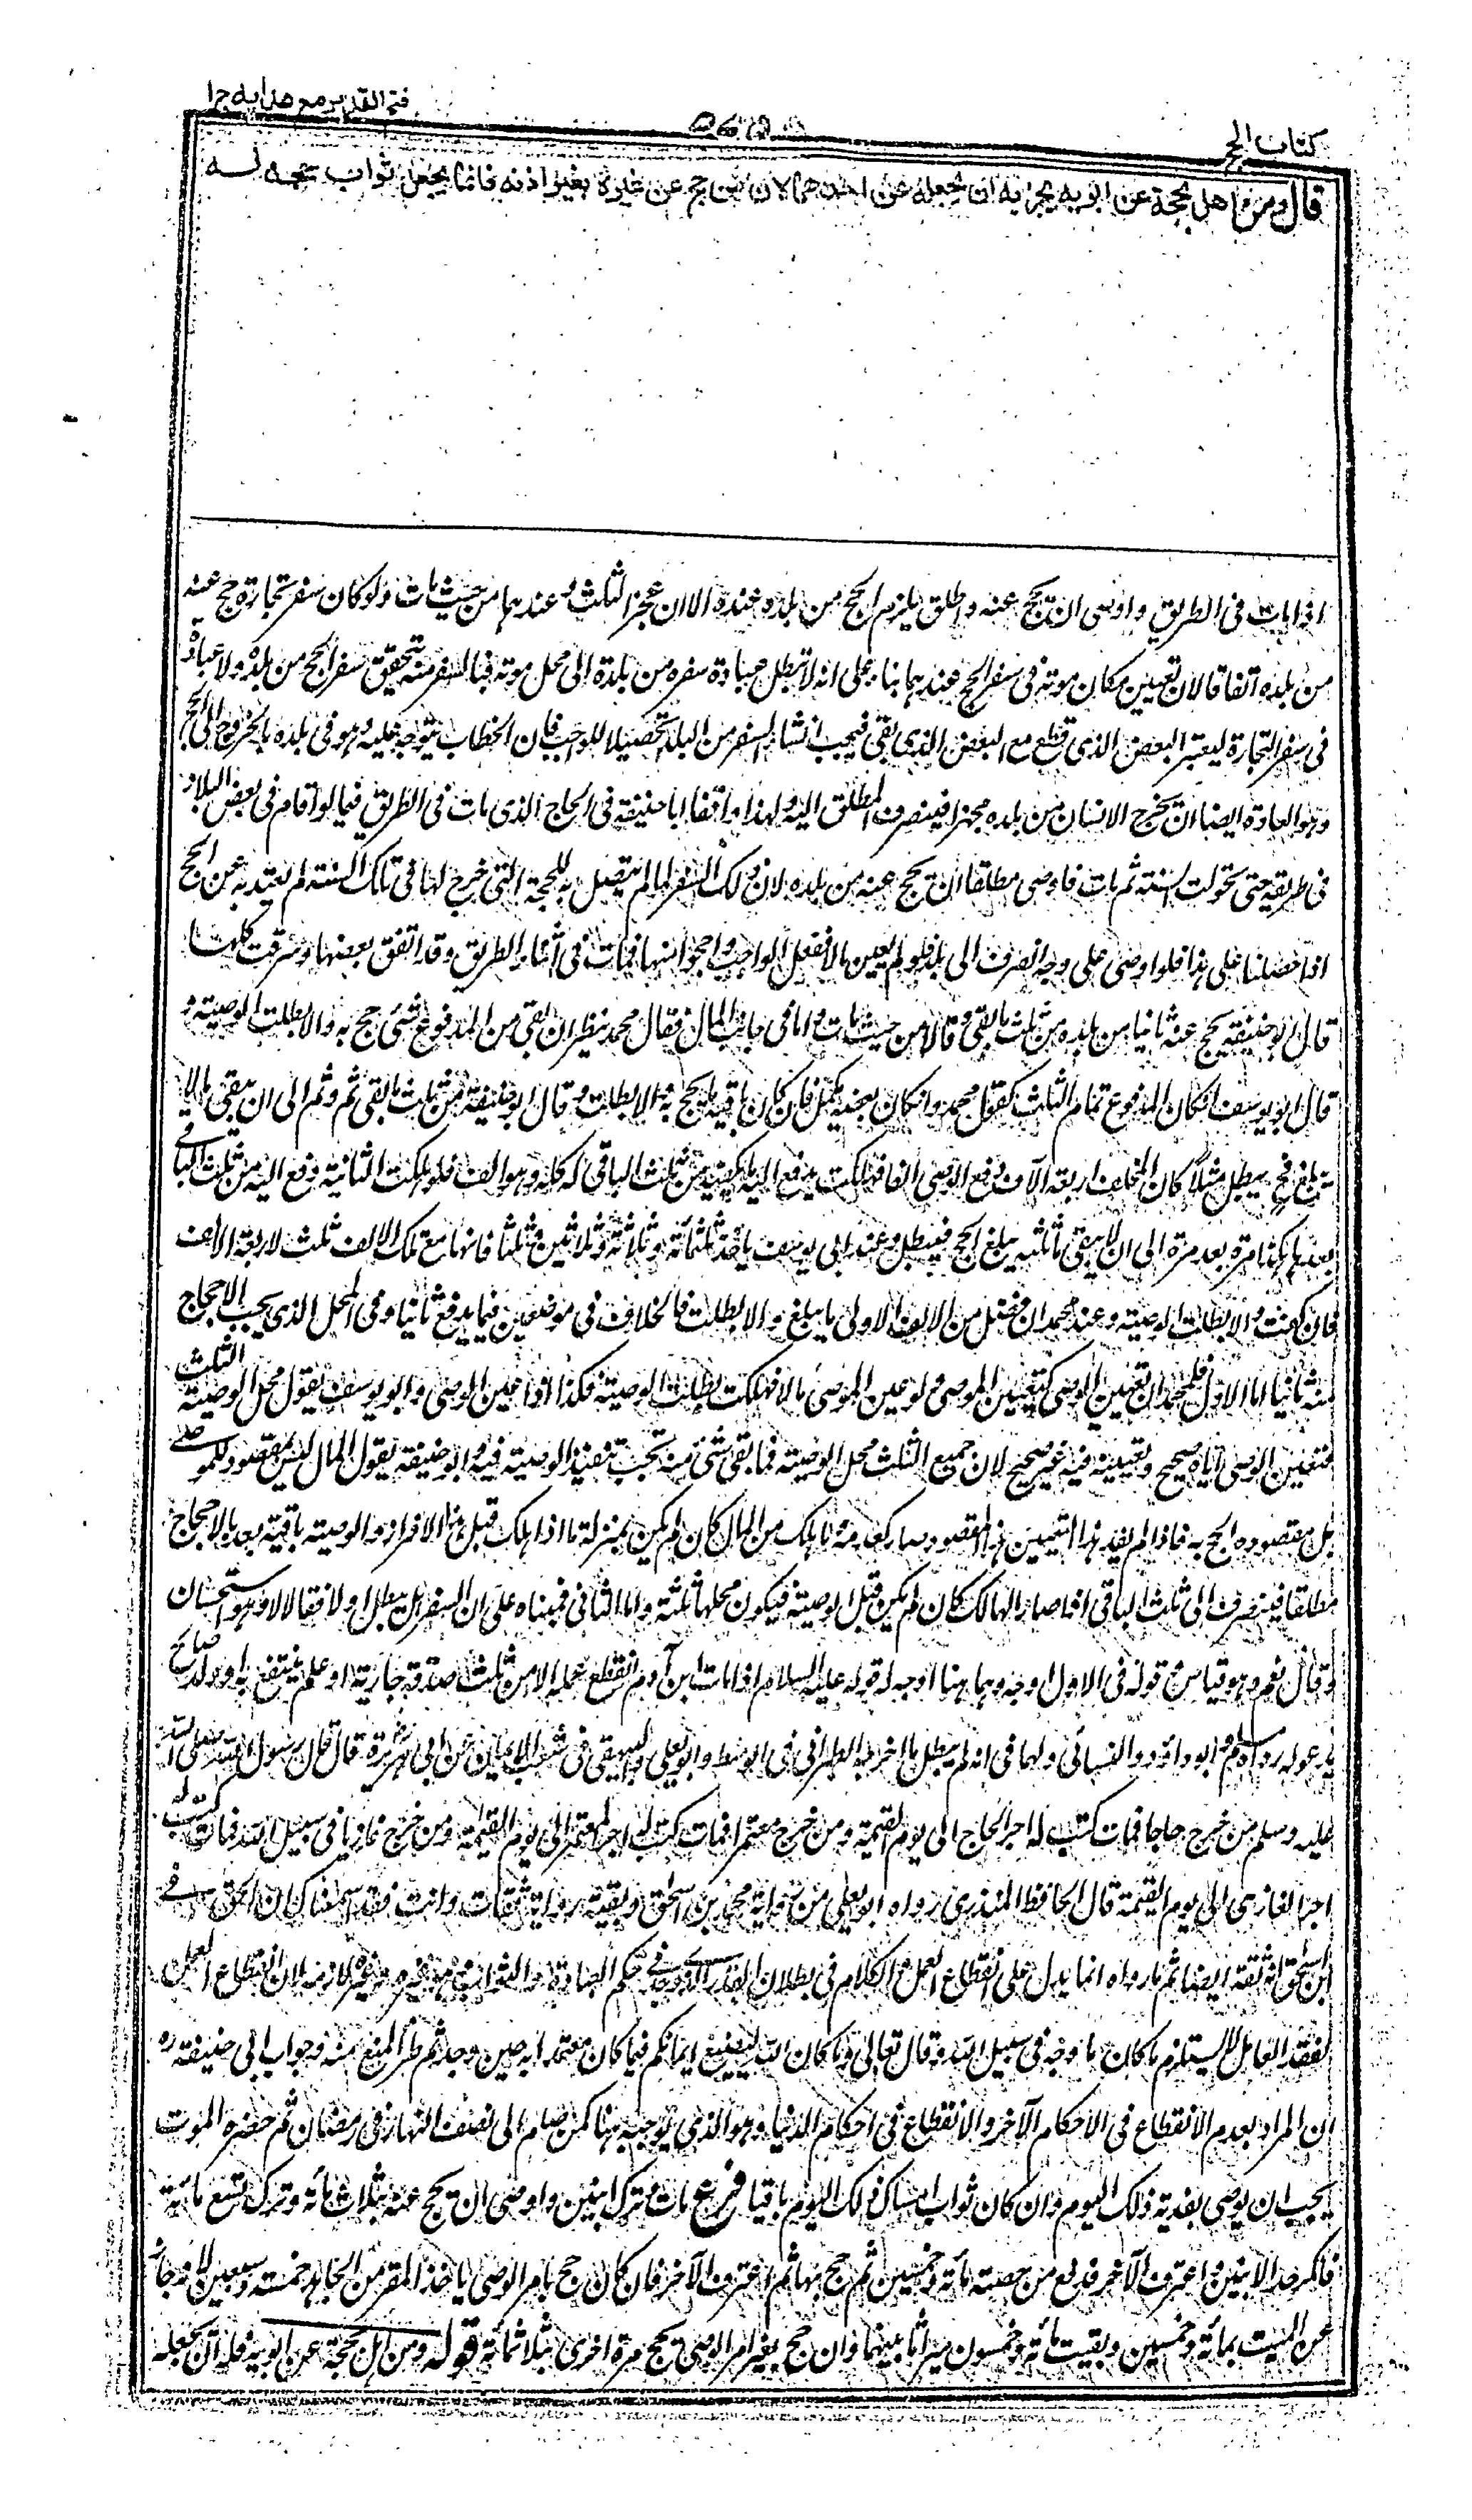 كتاب الحج
فتح القدير مع هدايه ج ١
قال ومن اهل بحجة عن ابويه يجزيه ان يجعله عن احدهما لان من حج عن غيره بغير اذنه فانما يجعل ثواب حجه له
اذا مات فى الطريق واوصى ان يحج عنه واطلق يلزم الحج من بلده عنده الا ان عجز الثلث وعندهما من حيث مات ولو كان سفر تجارة حج عنه
من بلده اتفاقا لان تعيين مكان موته فى سفر الحج عندهما بناء على انه لا تبطل عبادة سفره من بلده الى محل موته فبالسفر منه تتحقق سفر الحج من بلده ولا عبادة
فى سفر التجارة ليعتبر البعض الذى قطع مع البعض الذى بقى فيجب انشاء السفر من البلد تحصيلا للواجب فان الخطاب يتوجه عليه وهو فى بلده بالخروج الى الحج
وهو العادة ايضا ان يخرج الانسان من بلده مجهزا فينصرف المطلق اليه ولهذا وافقا ابا حنيفة فى الحاج الذى مات فى الطريق فيما لو اقام فى بعض البلاد
فى طريقه حتى تحولت السنة ثم مات فاوصى مطلقا ان يحج عنه من بلده لان ذلك السفر لما لم يتصل به الحجة التى خرج لها فى تلك السنة لم يعتد به عن الحج
اذا حصلنا على هذا فلو اوصى على وجه انصرف الى بلده فلو لم يعين مالا ففعل الواجب واحجوا منها فمات فى اثناء الطريق وقد انفق بعضها وسرقت كلها
قال ابو حنيفة يحج عنه ثانيا من بلده من ثلث ما بقى وقالا من حيث مات واما فى جانب المال فقال محمد ينظر ان بقى من المدفوع شئ حج به والا بطلت الوصية و
قال ابو يوسف ان كان المدفوع تمام الثلث كقول محمد وان كان بعضه يكمل فان كان باقيه ما يحج به والا بطلت وقال ابو حنيفة من ثلث ما بقى ثم وثم الى ان يبقى مالا
يبلغ فحج يبطل مثلا كان المخلف اربعة آلاف دفع الوصى الفا فهلكت يدفع اليه ما يكفيه من ثلث الباقى او كله وهو الف فلو هلكت الثانية دفع اليه من ثلث الباقى
بعدها هكذا مرة بعد مرة الى ان لا يبقى ما ثلثه يبلغ الحج فيبطل وعند ابى يوسف ياخذ ثلثمائة وثلاثة وثلاثين وثلثا فانها مع تلك الالف ثلث الاربعة الالاف
فان كفت والا بطلت الوصية وعند محمد ان فضل من الالف الاولى ما يبلغ والا بطلت فالخلاف فى موضعين فيما يدفع ثانيا وفى المحل الذى يجب الاحجاج
منه ثانيا اما الاول فلمحمد ان تعيين الوصى كتعيين الموصى ولو عين الموصى مالا فهلكت بطلت الوصية فكذا اذا عين الوصى وابو يوسف يقول محل الوصية الثلث
فتعيين الوصى اياه صحيح وتعيينه فيه غير صحيح لان جميع الثلث محل الوصية فما بقى شئ منه تجب تنفيذ الوصية فيه وابو حنيفة يقول المال ليس مقصود للموصى
بل مقصوده الحج به فاذا لم يفد هذا التعيين هذا المقصود صار كعدمه ما هلك من المال كان لم يكن بمنزلة ما اذا هلك قبل هذا الافراز والوصية باقية بعد بالاحجاج
مطلقا فينصرف الى ثلث الباقى اذا صار الهالك كان لم يكن قبل الوصية فيكون محلها ثلثه واما الثانى فمبناه على ان السفر هل يبطل او لا فقالا لا وهو استحسان
وقال نعم وهو قياس قوله فى الاول اوجه وهما هنا اوجه له قوله عليه السلام اذا مات ابن آدم انقطع عمله الا من ثلث صدقة جارية او علم ينتفع به او ولد صالح
يدعو له رواه مسلم وابو داؤد والنسائى ولهما فى انه لم يبطل ما اخرجه الطبرانى فى الاوسط وابو يعلى والبيهقى فى شعب الايمان عن ابى هريرة قال قال رسول الله صلى الله
عليه وسلم من خرج حاجا فمات كتب له اجر الحاج الى يوم القيمة ومن خرج معتمرا فمات كتب له اجر المعتمر الى يوم القيمة ومن خرج غازيا فى سبيل الله فمات كتب له
اجر الغازى الى يوم القيمة قال الحافظ المنذرى رواه ابو يعلى من رواية محمد بن اسحق وبقية رواته ثقات وانت فقد اسمعناك ان الحق فى
ابن اسحق انه ثقة ايضا ثم ما رواه انما يدل على انقطاع العمل والكلام فى بطلان القدر الذى وجد فى حكم العبادة والثواب وهو غيره وغير لازمه لان انقطاع العمل
لفقد العامل لا يستلزم ما كان ما وجد فى سبيل الله وقال تعالى وما كان الله ليضيع ايمانكم فيما كان معتمدا به حين وجد ثم طرأ المنع منه وجواب ابى حنيفة ره
ان المراد بعدم الانقطاع فى الاحكام الآخر والانقطاع فى احكام الدنيا وهو الذى يوجبه هنا كمن صام الى نصف النهار فى رمضان ثم حضره الموت
يجب ان يوصى بفدية ذلك اليوم وان كان ثواب امساك ذلك اليوم باقيا فرع مات وترك ابنين واوصى ان يحج عنه بثلاث مائة وترك تسع مائة
فانكر احد الابنين واعترف الآخر فدفع من حصته مائة وخمسين ثم حج بها ثم اعترف الآخر فان كان حج بامر الوصى ياخذ المقر من الجاحد خمسة وسبعين لانه جاز
عن الميت بمائة وخمسين وبقيت مائة وخمسون ميراثا بينهما وان حج بغير امر الوصى يحج مرة اخرى بثلاثمائة قوله ومن اهل بحجة عن ابويه فله ان يجعله